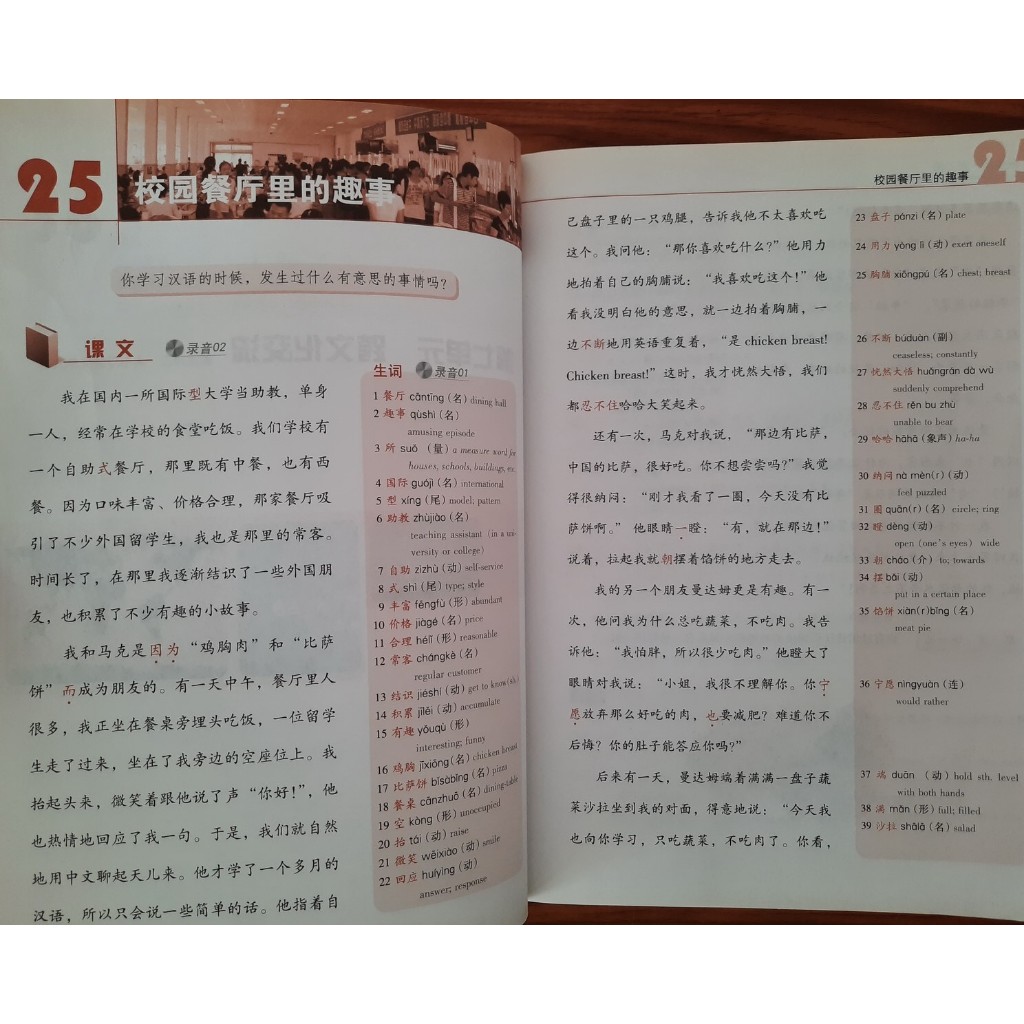 25
校园餐厅里的趣事
你学习汉语的时候，发生过什么有意思的事情吗？
课文 录音02
我在国内一所国际型大学当助教，单身
一人，经常在学校的食堂吃饭。我们学校有
一个自助式餐厅，那里既有中餐，也有西
餐。因为口味丰富、价格合理，那家餐厅吸
引了不少外国留学生，我也是那里的常客。
时间长了，在那里我逐渐结识了一些外国朋
友，也积累了不少有趣的小故事。
我和马克是因为“鸡胸肉”和“比萨
饼”而成为朋友的。有一天中午，餐厅里人
很多，我正坐在餐桌旁埋头吃饭，一位留学
生走了过来，坐在了我旁边的空座位上。我
抬起头来，微笑着跟他说了声“你好！”，他
也热情地回应了我一句。于是，我们就自然
地用中文聊起天儿来。他才学了一个多月的
汉语，所以只会说一些简单的话。他指着自
生词 录音01
1 餐厅 cāntīng（名）dining hall
2 趣事 qùshì（名）
amusing episode
3 所 suǒ （量）a measure word for
houses, schools, buildings, etc.
4 国际 guójì（名）international
5 型 xíng（尾）model; pattern
6 助教 zhùjiào（名）
teaching assistant (in a uni-
versity or college)
7 自助 zìzhù（动）self-service
8 式 shì（尾）type; style
9 丰富 fēngfù（形）abundant
10 价格 jiàgé（名）price
11 合理 hélǐ（形）reasonable
12 常客 chángkè（名）
regular customer
13 结识 jiéshí（动）get to know (sb.)
14 积累 jīlěi（动）accumulate
15 有趣 yǒuqù（形）
interesting; funny
16 鸡胸 jīxiōng（名）chicken breast
17 比萨饼 bǐsàbǐng（名）pizza
18 餐桌 cānzhuō（名）dining-table
19 空 kòng（形）unoccupied
20 抬 tái（动）raise
21 微笑 wēixiào（动）smile
22 回应 huíyìng（动）
answer; response
校园餐厅里的趣事
25
己盘子里的一只鸡腿，告诉我他不太喜欢吃
这个。我问他：“那你喜欢吃什么？”他用力
地拍着自己的胸脯说：“我喜欢吃这个！”他
看我没明白他的意思，就一边拍着胸脯，一
边不断地用英语重复着，“是 chicken breast!
Chicken breast!”这时，我才恍然大悟，我们
都忍不住哈哈大笑起来。
还有一次，马克对我说，“那边有比萨，
中国的比萨，很好吃。你不想尝尝吗？”我觉
得很纳闷：“刚才我看了一圈，今天没有比
萨饼啊。”他眼睛一瞪：“有，就在那边！”
说着，拉起我就朝摆着馅饼的地方走去。
我的另一个朋友曼达姆更是有趣。有一
次，他问我为什么总吃蔬菜，不吃肉。我告
诉他：“我怕胖，所以很少吃肉。”他瞪大了
眼睛对我说：“小姐，我很不理解你。你宁
愿放弃那么好吃的肉，也要减肥？难道你不
后悔？你的肚子能答应你吗？”
后来有一天，曼达姆端着满满一盘子蔬
菜沙拉坐到我的对面，得意地说：“今天我
也向你学习，只吃蔬菜，不吃肉了。你看，
23 盘子 pánzi（名）plate
24 用力 yòng lì（动）exert oneself
25 胸脯 xiōngpú（名）chest; breast
26 不断 búduàn（副）
ceaseless; constantly
27 恍然大悟 huǎngrán dà wù
suddenly comprehend
28 忍不住 rěn bu zhù
unable to bear
29 哈哈 hāhā（象声）ha-ha
30 纳闷 nà mèn(r)（动）
feel puzzled
31 圈 quān(r)（名）circle; ring
32 瞪 dèng（动）
open (one's eyes) wide
33 朝 cháo（介）to; towards
34 摆 bǎi（动）
put in a certain place
35 馅饼 xiàn(r)bǐng（名）
meat pie
36 宁愿 nìngyuàn（连）
would rather
37 端 duān （动）hold sth. level
with both hands
38 满 mǎn（形）full; filled
39 沙拉 shālā（名）salad